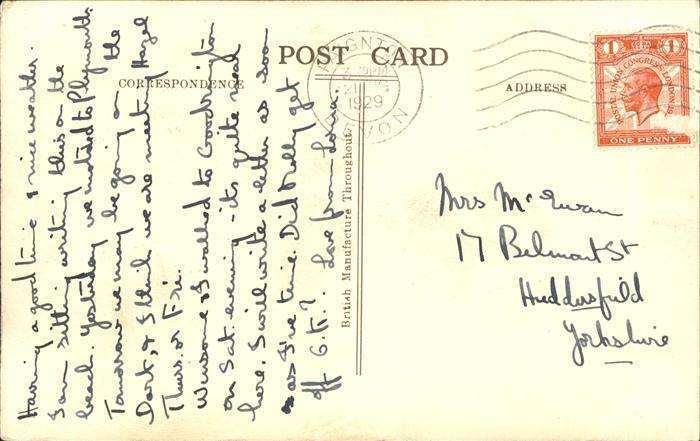 POST CARD
CORRESPONDENCE
ADDRESS
British Manufacture Throughout.
PAIGNTON
1929
DEVON
1 1
POSTAL UNION CONGRESS LONDON 1929
ONE PENNY
Having a good time & nice weather.
I am sitting writing this on the
beach. Yesterday we motored to Plymouth.
Tomorrow we may be going on the
Dart, & I think we are meeting Hazel
Thurs. or Fri.
Winsome & I walked to Goodrington
on Sat. evening - it's quite near
here. I will write a letter as soon
as I've time. Did Milly get
off O.K.? Love from
Mrs McEwan
17 Belmont St
Huddersfield
Yorkshire